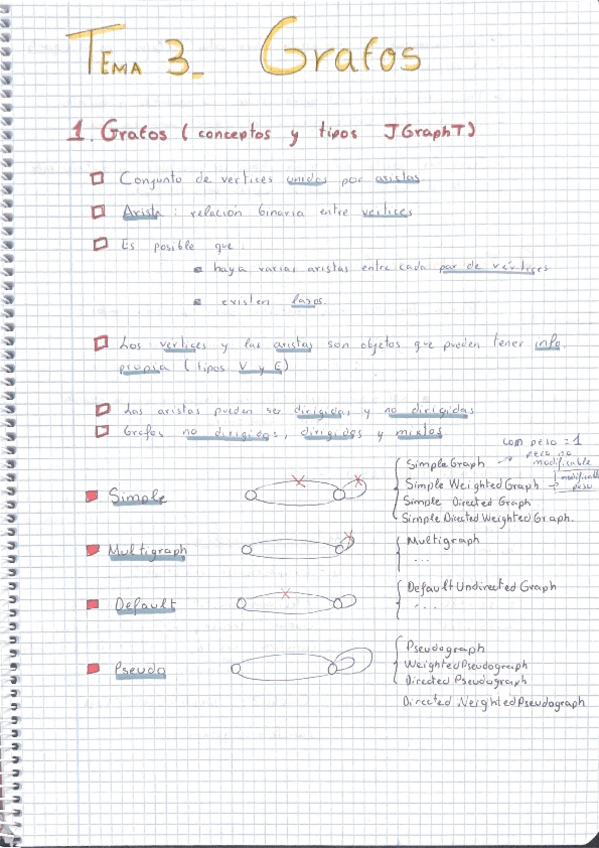 Tema 3_ Grafos
1. Grafos (conceptos y tipos JGraphT)
Conjunto de vertices unidos por aristas
Arista : relación binaria entre vertices
Es posible que
haya varias aristas entre cada par de vértices
existen lazos.
Los vertices y las aristas son objetos que pueden tener info.
propia (tipos V y E)
Las aristas pueden ser dirigidas y no dirigidas
Grafos no dirigidos, dirigidos y mixtos
Simple
SimpleGraph → com peso = 1
pero no
modificable
Simple Weighted Graph → modificable
peso
Simple Directed Graph
Simple Directed Weighted Graph.
Multigraph
Multigraph
...
Default
Default Undirected Graph
....
Pseudo
Pseudograph
WeightedPseudograph
Directed Pseudograph
Directed WeightedPseudograph